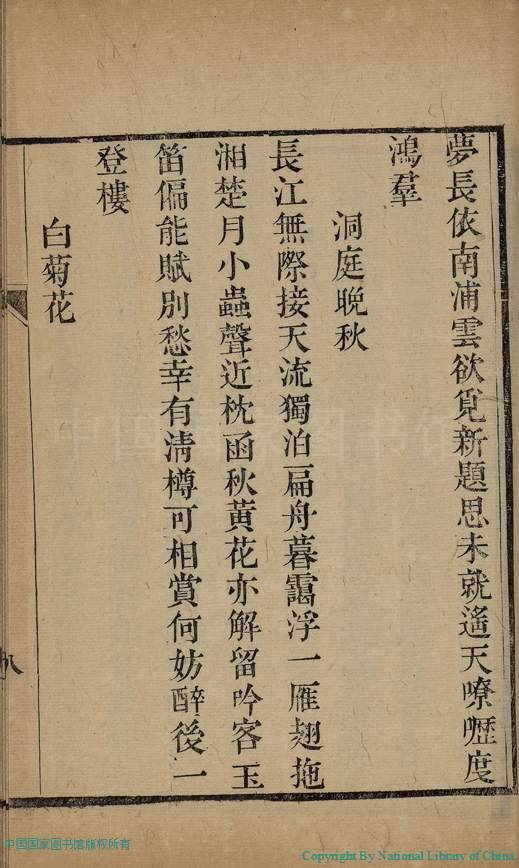 夢長依南浦雲欲覓新題思未就遙天嘹嚦度
鴻羣
洞庭晚秋
長江無際接天流獨泊扁舟暮靄浮一雁翅拖
湘楚月小蟲聲近枕函秋黃花亦解留吟客玉
笛偏能賦別愁幸有淸樽可相賞何妨醉後一
登樓
白菊花
中国国家图书馆版权所有
Copyright By National Library of China